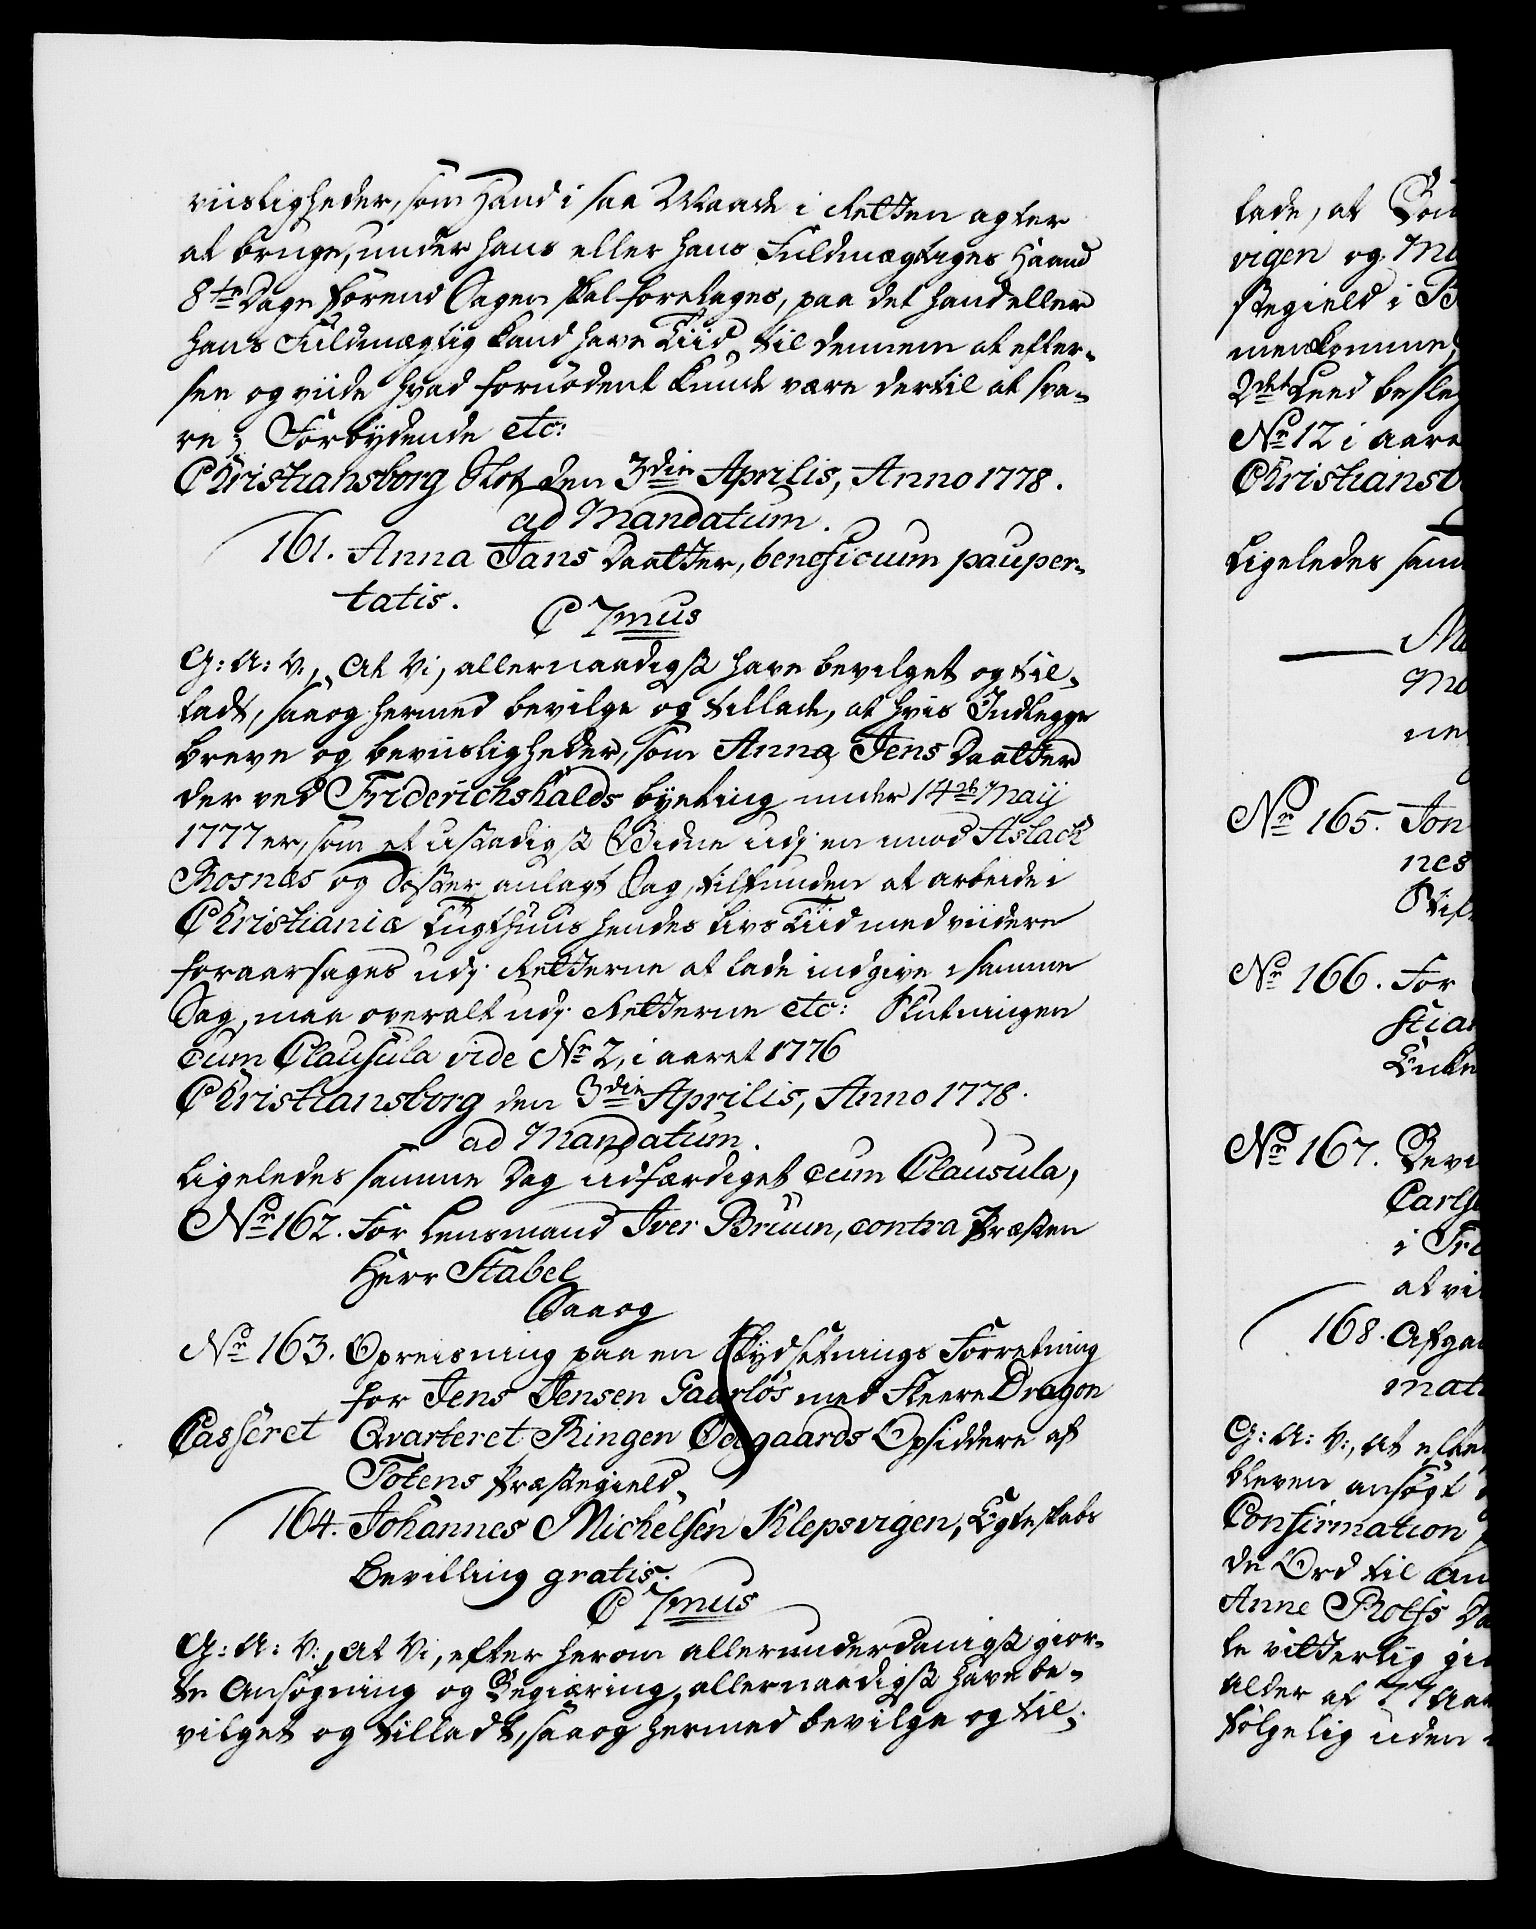 viisligheder, som hand i saa Maade i Retten agter
at bruge, under hans eller hans Fuldmægtiges Haand
8te Dage førend Sagen skal foretages, paa det hand eller
hans Fuldmægtig kand have Tiid, til dennem at efter-
see og viide hvad fornödent kunde være dertil at sva-
re; Forbydende etc:
Christiansborg Slot den 3die Aprilis, Anno 1778.
ad Mandatum.
161. Anna Jans Daatter, beneficium pauper-
tatis.
C 7mus
G: A: V:, At Vi, allernaadigst have bevilget og til-
ladt, saa og hermed bevilge og tillade, at hvis Indlegge
breve og beviisligheder, som Anna Jens Daatter
der ved Friderichshalds byeting under 14de Maij
1777 er, som et ustadigt Vidne udj en mod Aslach
Rosnæs og Söster anlagt Sag, tilfunden at arbeide i
Christiania Tugthuus hendes Livs Tiid med viidere
foraarsages udj Retterne at lade indgive i samme
Sag, maa overalt udj Retterne etc: Slutningen
cum Clausula vide No 2, i aaret 1776
Christiansborg den 3die Aprilis, Anno 1778.
ad Mandatum.
Ligeledes samme Dag udfærdiget cum Clausula,
No 162. For Lensmand Iver Bruun, contra Præsten
Herr Stabel
Saa og
No 163. Opreisning paa en Skydsetnings Forretning
for Jens Jensen Gaarlös med fleere Dragon
Casseret Qvarteret Ringen Ödegaards Opsiddere af
Totens Præstegield.
164. Johannes Michelsen Klepsvigen, Egteskabs
Bevilling gratis.
C 7mus
G: A: V:, At Vi, efter herom allerunderdanigst gior-
te Ansøgning og Begiæring, allernaadigst have be-
vilget og tilladt, saa og hermed bevilge og til-
lade, at
vigen og
stegield i
menkomme
2det Leed
No 12 i aare
Ligeledes
No 165. Jon
nes
No 166. For
No 167.
i
at
168. Afga
G: A: V:, At
bleven ansögt
Confirmation
de Ord til
Anne Rolfs
te vitterlig
Alder af
fölgelig uden